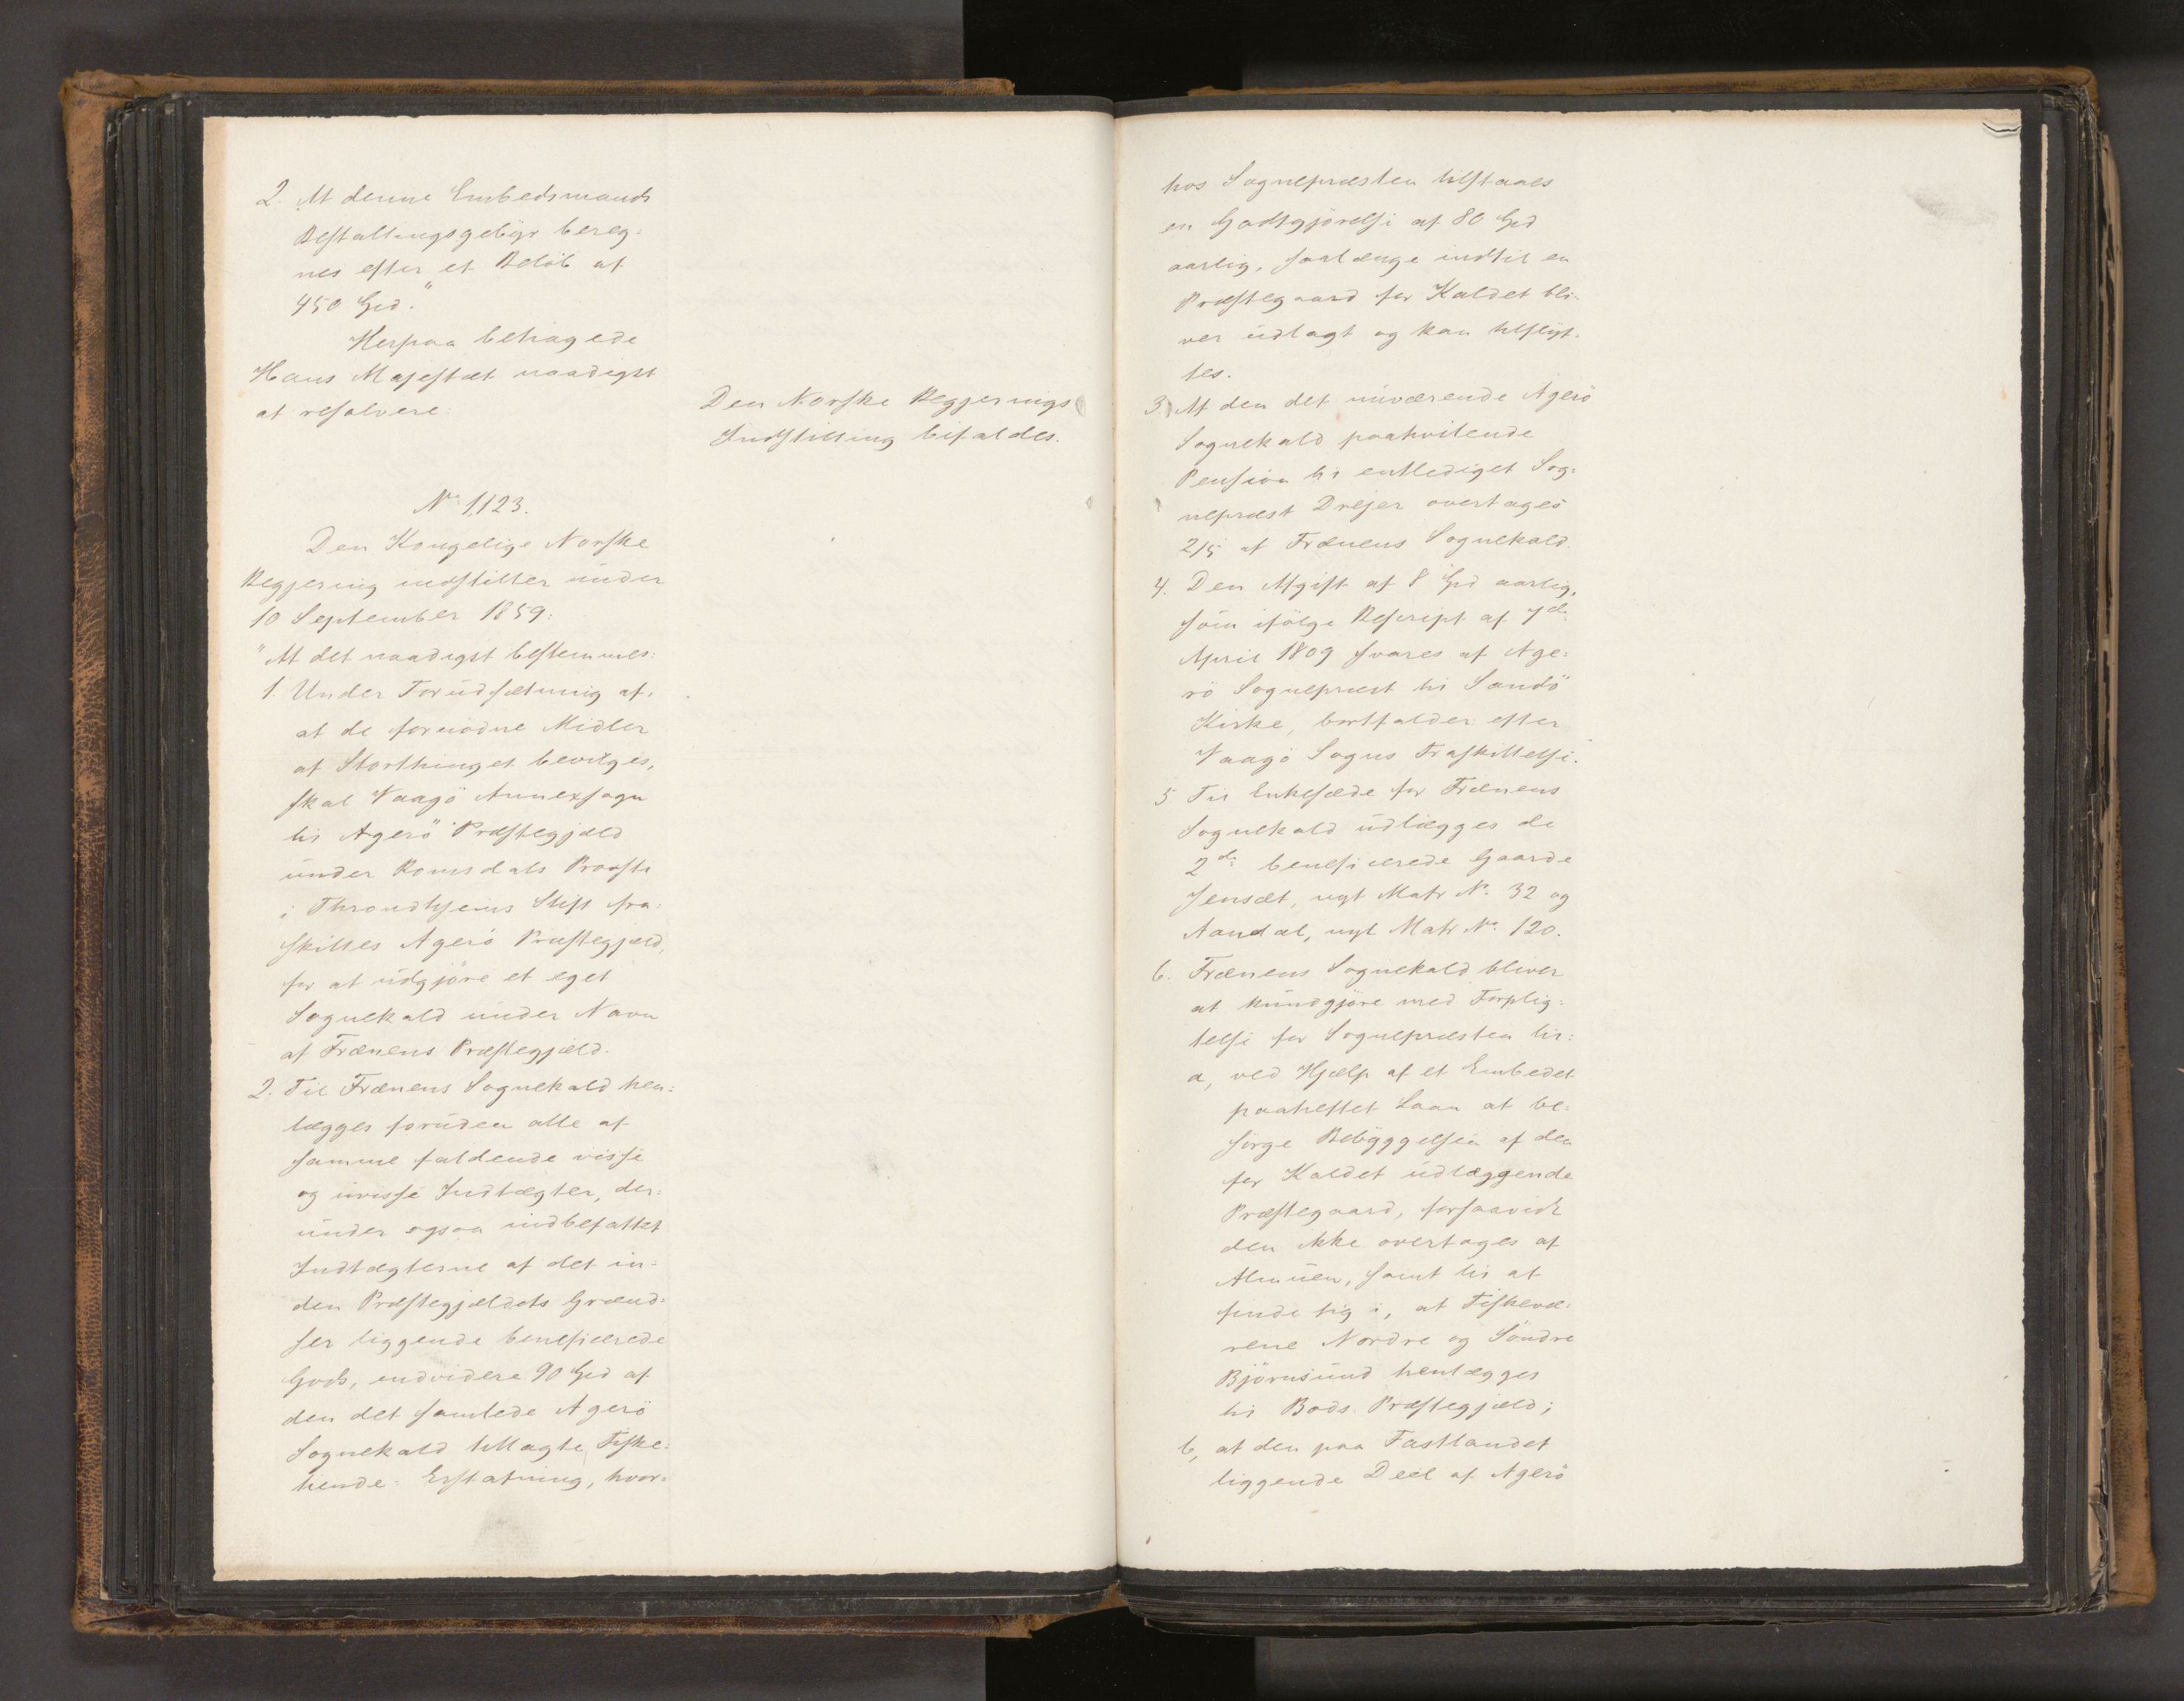 2. At denne Embedsmands
Bestallingsgebyr bereg-
nes efter et Beløb af
450 Spd."
Herpaa behagede
Hans Majestæt naadigst
at resolvere:
Den Norske Regjerings
Indstilling bifaldes.
No 1,123.
Den Kongelige Norske
Regjering indstiller under
10 September 1859:
"At det naadigst bestemmes:
1. Under Forudsætning af,
at de fornødne Midler
af Storthinget bevilges,
skal Vaagö Annexsogn
til Agerö Præstegjæld
under Romsdals Provsti
i Throndhjems Stift fra-
skilles Agerö Præstegjæld,
for at udgjöre et eget
Sognekald under Navn
af Frænens Præstegjæld.
2. Til Frænens Sognekald hen-
lægges foruden alle af
samme faldende visse
og uvisse Indtægter, der-
under ogsaa indbefattet
Indtægterne af det in-
den Præstegjældets Grænd-
ser liggende beneficerede
Gods, endvidere 90 Spd af
den det samlede Agerö
Sognekald tillagte Fiske-
tiende-Erstatning, hvor-
hos Sognepræsten tilstaaes
en Godtgjörelse af 80 Spd
aarlig, saalænge indtil en
Præstegaard for Kaldet bli-
ver udlagt og kan tilflyt-
tes.
3) Af den det nuværende Agerö
Sognekald paahvilende
Pension til entlediget Sog-
nepræst Drejer overtages
2/5 af Frænens Sognekald.
4. Den Afgift af 8 Spd aarlig,
som ifölge Rescript af 7de
April 1809 svares af Age-
rö Sognepræst til Sandö
Kirke, bortfalder efter
Vaagö Sogns Fraskillelse.
5 Til Enkesæde for Frænens
Sognekald udlægges de
2de beneficerede Gaarde
Jensæt, nyt Matr No 32 og
Aandal, nyt Matr No 120.
6. Frænens Sognekald bliver
at kundgjöre med Forplig-
telse for Sognepræsten til:
a, ved Hjælp af et Embedet
paaheftet Laan at be-
sörge Bebyggelsen af den
for Kaldet udlæggende
Præstegaard, forsaavidt
den ikke overtages af
Almuen, samt til at
finde sig i, at Fiskevæ-
rene Nordre og Söndre
Björnsund henlægges
til Bods Præstegjæld;
b, at den paa Fastlandet
liggende Deel af Agerö